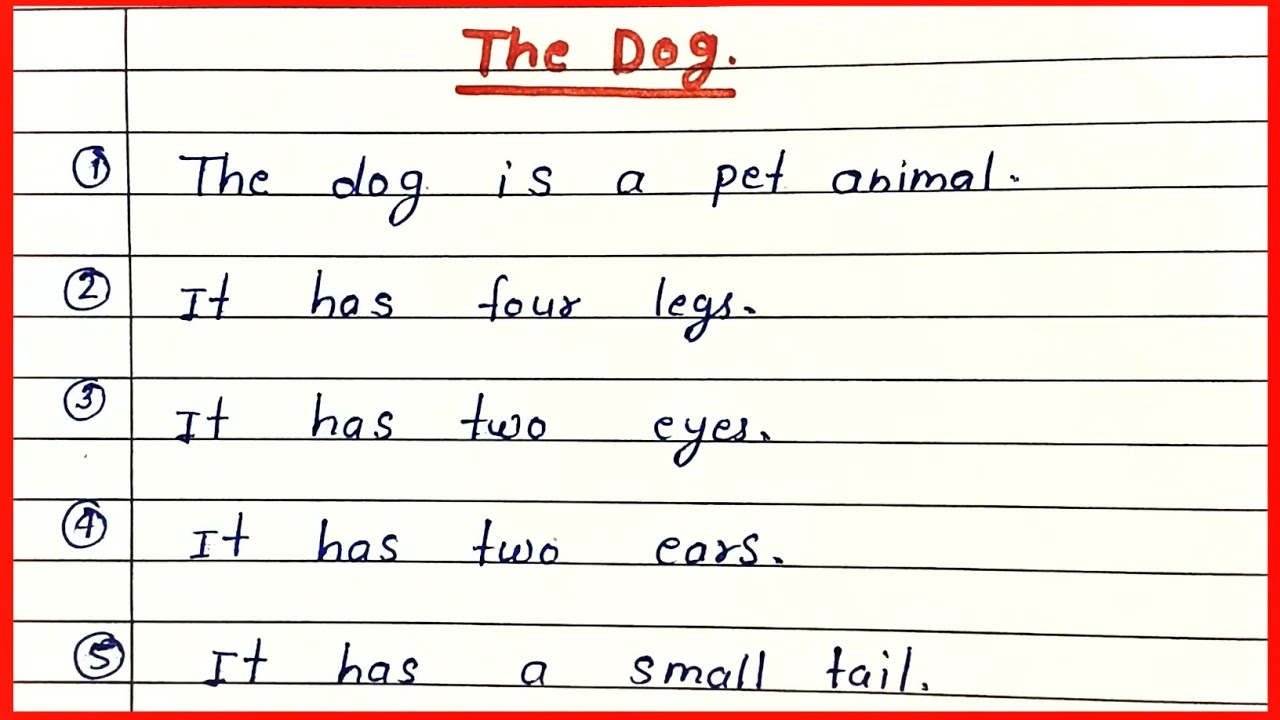 The Dog.
① The dog is a pet animal.
② It has four legs.
③ It has two eyes.
④ It has two ears.
⑤ It has a small tail.